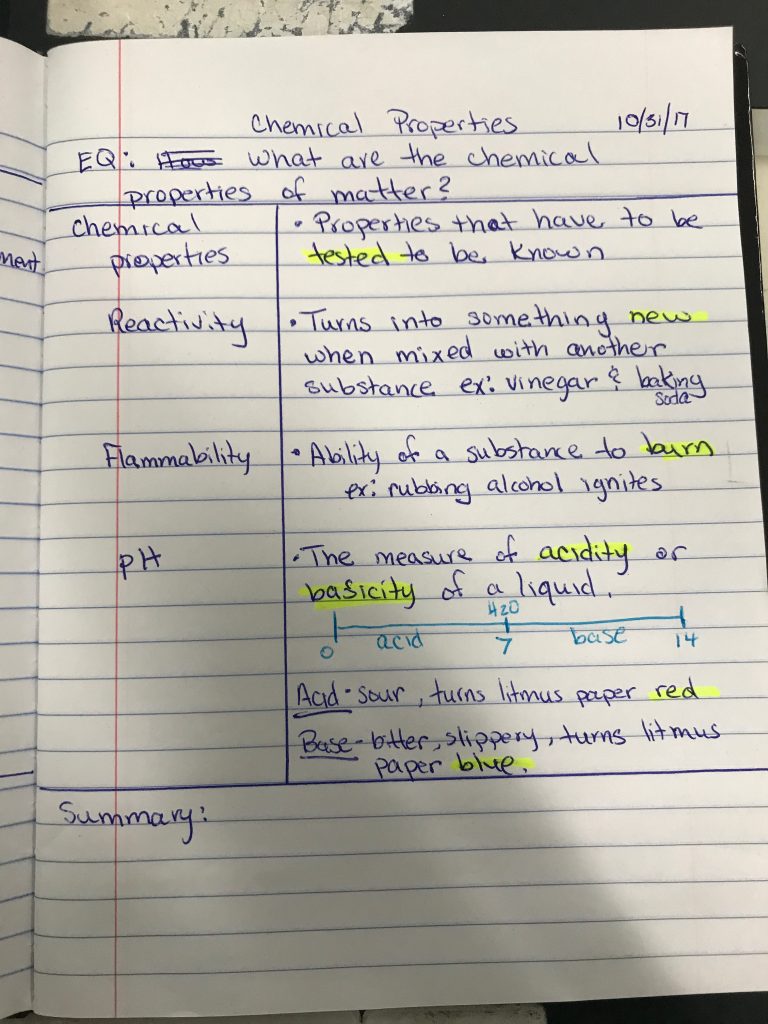 Chemical Properties 10/31/17
EQ: What are the chemical
properties of matter?
Chemical
properties
• Properties that have to be
tested to be known
Reactivity
• Turns into something new
when mixed with another
substance ex: vinegar & baking
soda
Flammability
• Ability of a substance to burn
ex: rubbing alcohol ignites
pH
• The measure of acidity or
basicity of a liquid.
H2O
0 acid 7 base 14
Acid - sour, turns litmus paper red
Base - bitter, slippery, turns litmus
paper blue.
Summary: